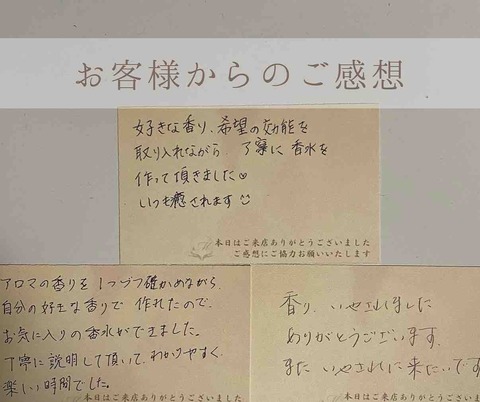 お客様からのご感想
好きな香り、希望の効能を
取り入れながら 丁寧に香水を
作って頂きました
いつも癒されます
本日はご来店ありがとうございました
ご感想にご協力お願いいたします
アロマの香りを1つづつ確かめながら、
自分の好きな香りで 作れたので、
お気に入りの香水ができました。
丁寧に説明して頂いて、わかりやすく、
楽しい時間でした。
本日はご来店ありがとうございました
香り、いやされました
ありがとうございます。
また いやされに来たいです
本日はご来店ありがとうございま